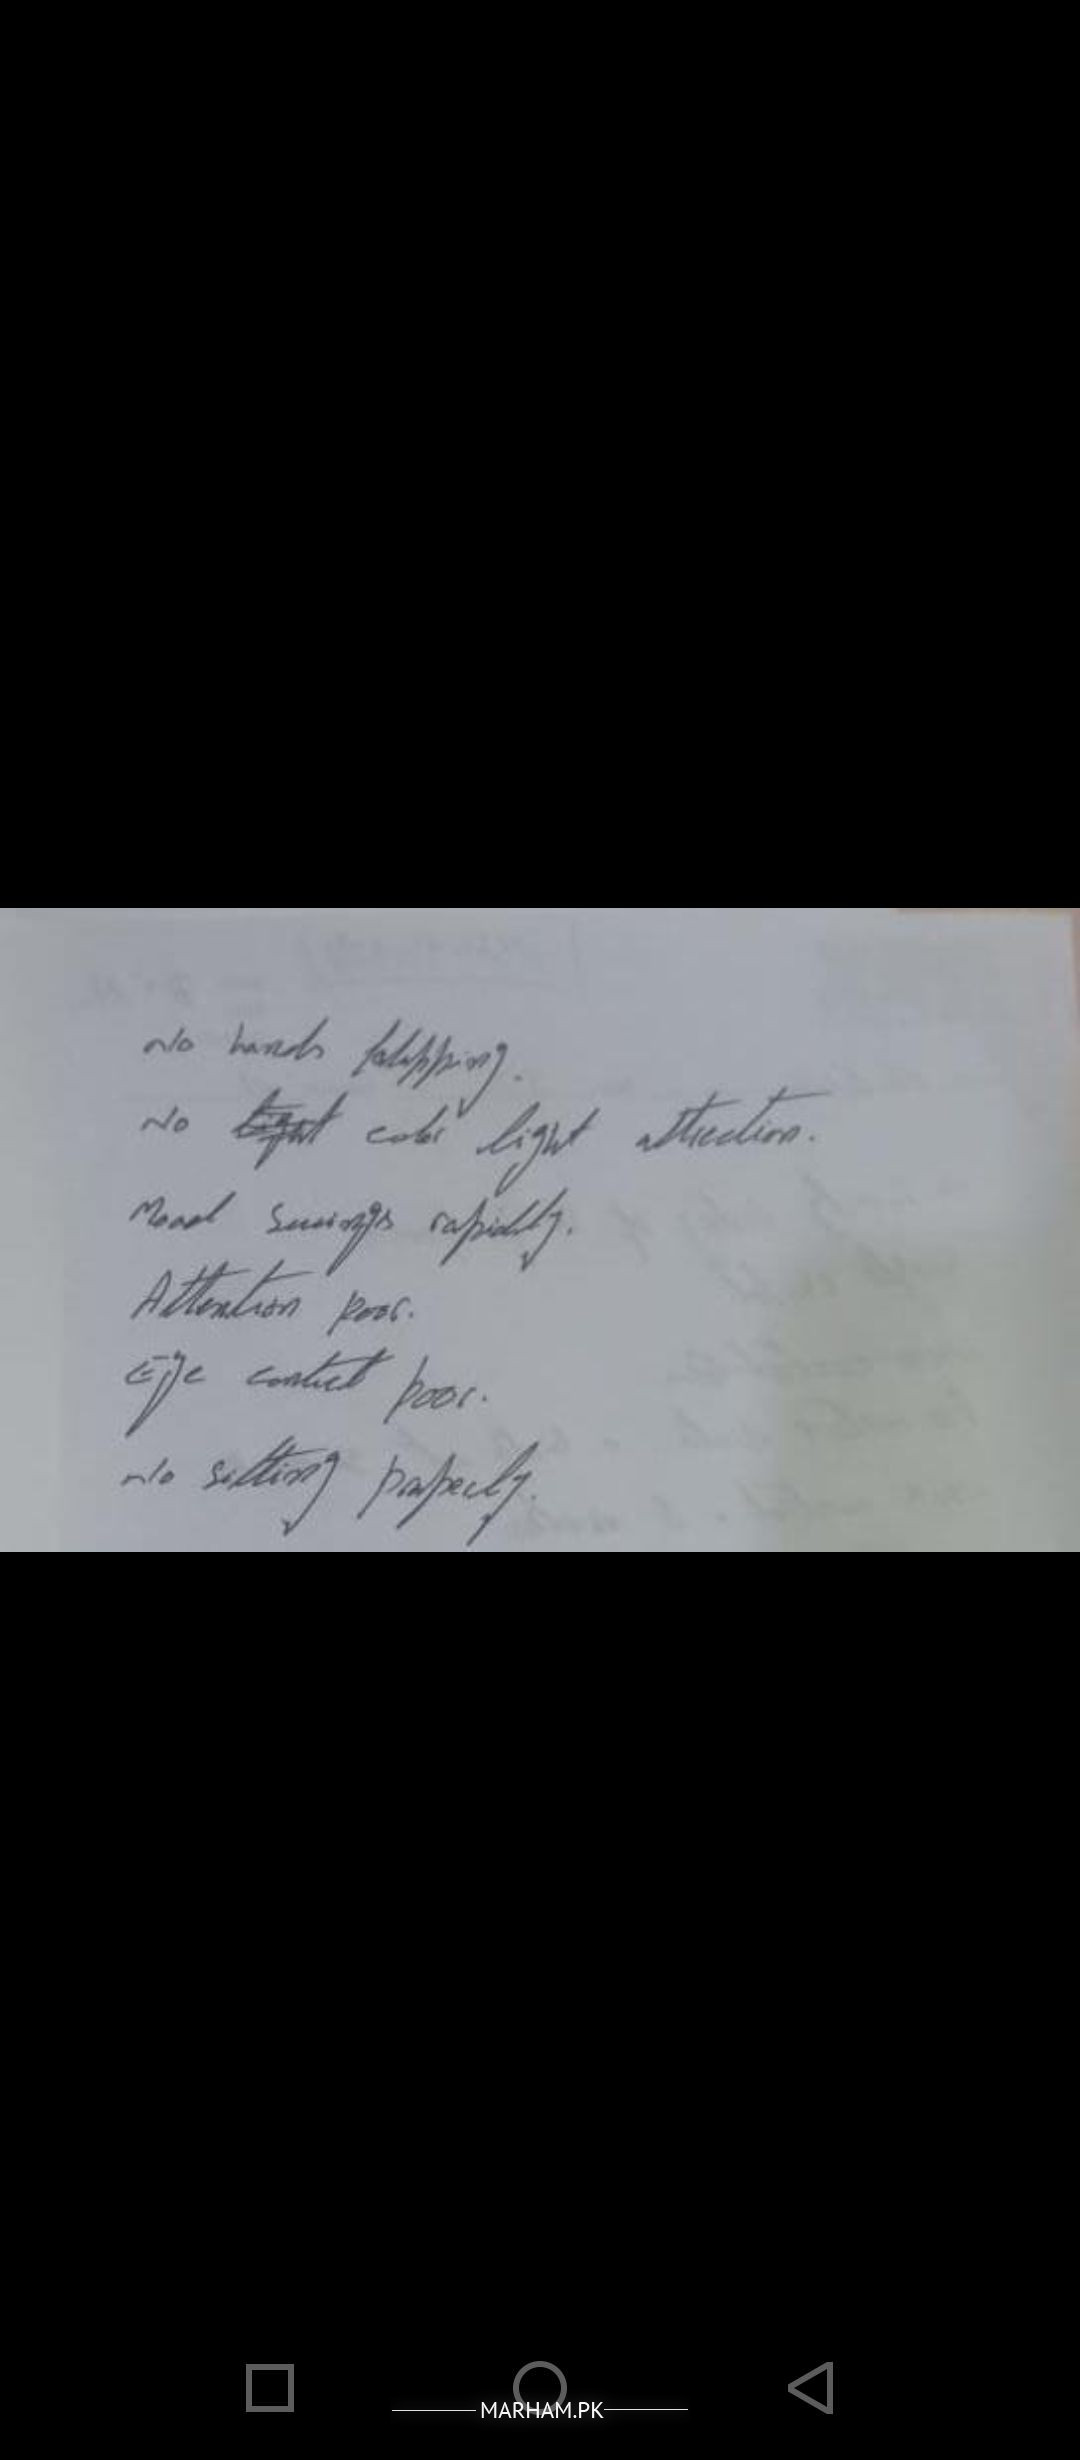 No hands falpping.
No color light attraction.
Mood swings rapidly.
Attention poor.
Eye contact poor.
No sitting properly.
MARHAM.PK